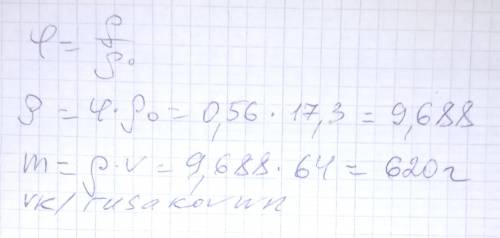 φ = ρ/ρ₀
ρ = φ·ρ₀ = 0,56 · 17,3 = 9,688
m = ρ·v = 9,688 · 64 = 620г
vk/rusakovwn